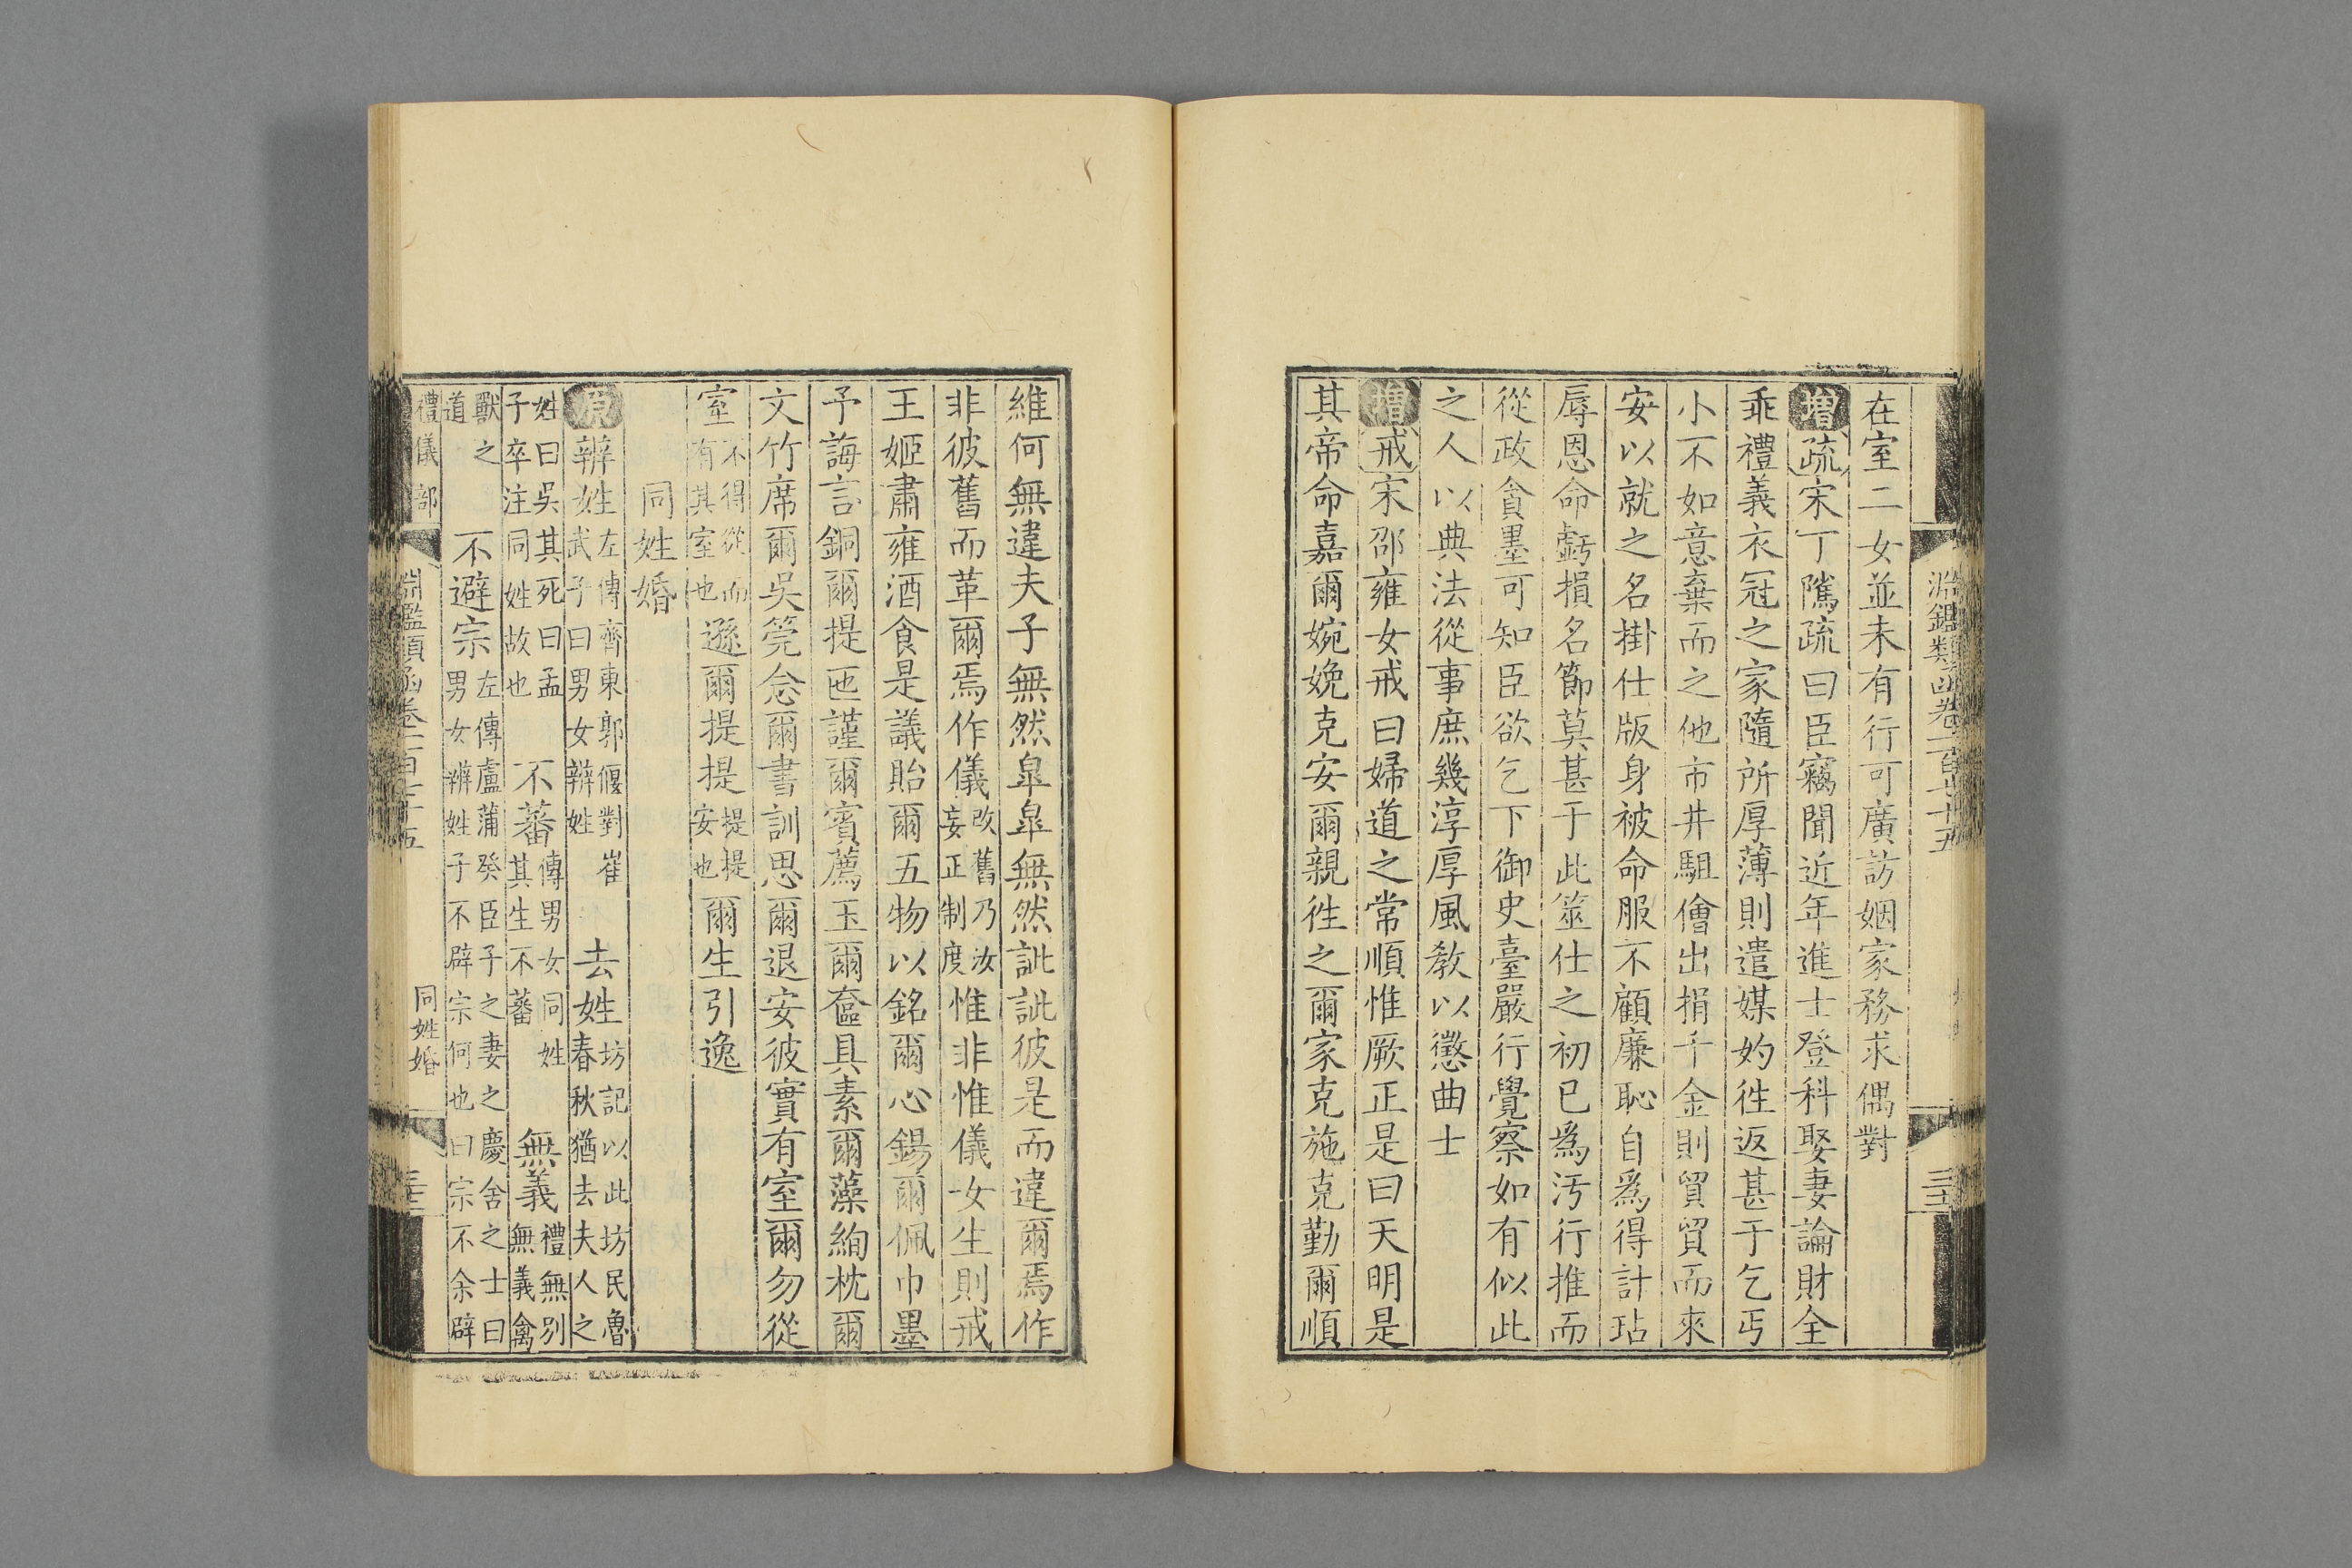 在室二女並未有行可廣訪姻家務求偶對
增疏宋丁隲疏曰臣竊聞近年進士登科娶妻論財全
乖禮義衣冠之家隨所厚薄則遣媒妁徃返甚于乞丐
小不如意棄而之他市井駔儈出捐千金則貿貿而來
安以就之名掛仕版身被命服不顧廉恥自爲得計玷
辱恩命虧損名節莫甚于此筮仕之初已爲汚行推而
從政貪墨可知臣欲乞下御史臺嚴行覺察如有似此
之人以典法從事庶幾淳厚風教以懲曲士
增戒宋邵雍女戒曰婦道之常順惟厥正是曰天明是
其帝命嘉爾婉娩克安爾親徃之爾家克施克勤爾順
維何無違夫子無然臯臯無然訿訿彼是而違爾焉作
非彼舊而革爾焉作儀改舊乃汝妄正制度惟非惟儀女生則戒
王姬肅雍酒食是議貽爾五物以銘爾心錫爾佩巾墨
予誨言銅爾提匜謹爾賓薦玉爾奩具素爾藻絢枕爾
文竹席爾吳筦念爾書訓思爾退安彼實有室爾勿從
室不得從而有其室也遜爾提提提提安也爾生引逸
同姓婚
原辨姓左傳齊東郭偃對崔武子曰男女辨姓去姓坊記以此坊民魯春秋猶去夫人之
姓曰吳其死曰孟子卒注同姓故也不蕃傳男女同姓其生不蕃無義禮無別無義禽
獸之道不避宗左傳盧蒲癸臣子之妻之慶舍之士曰男女辨姓子不辟宗何也曰宗不余辟
禮儀部
淵鑑類函卷一百七十五
同姓婚